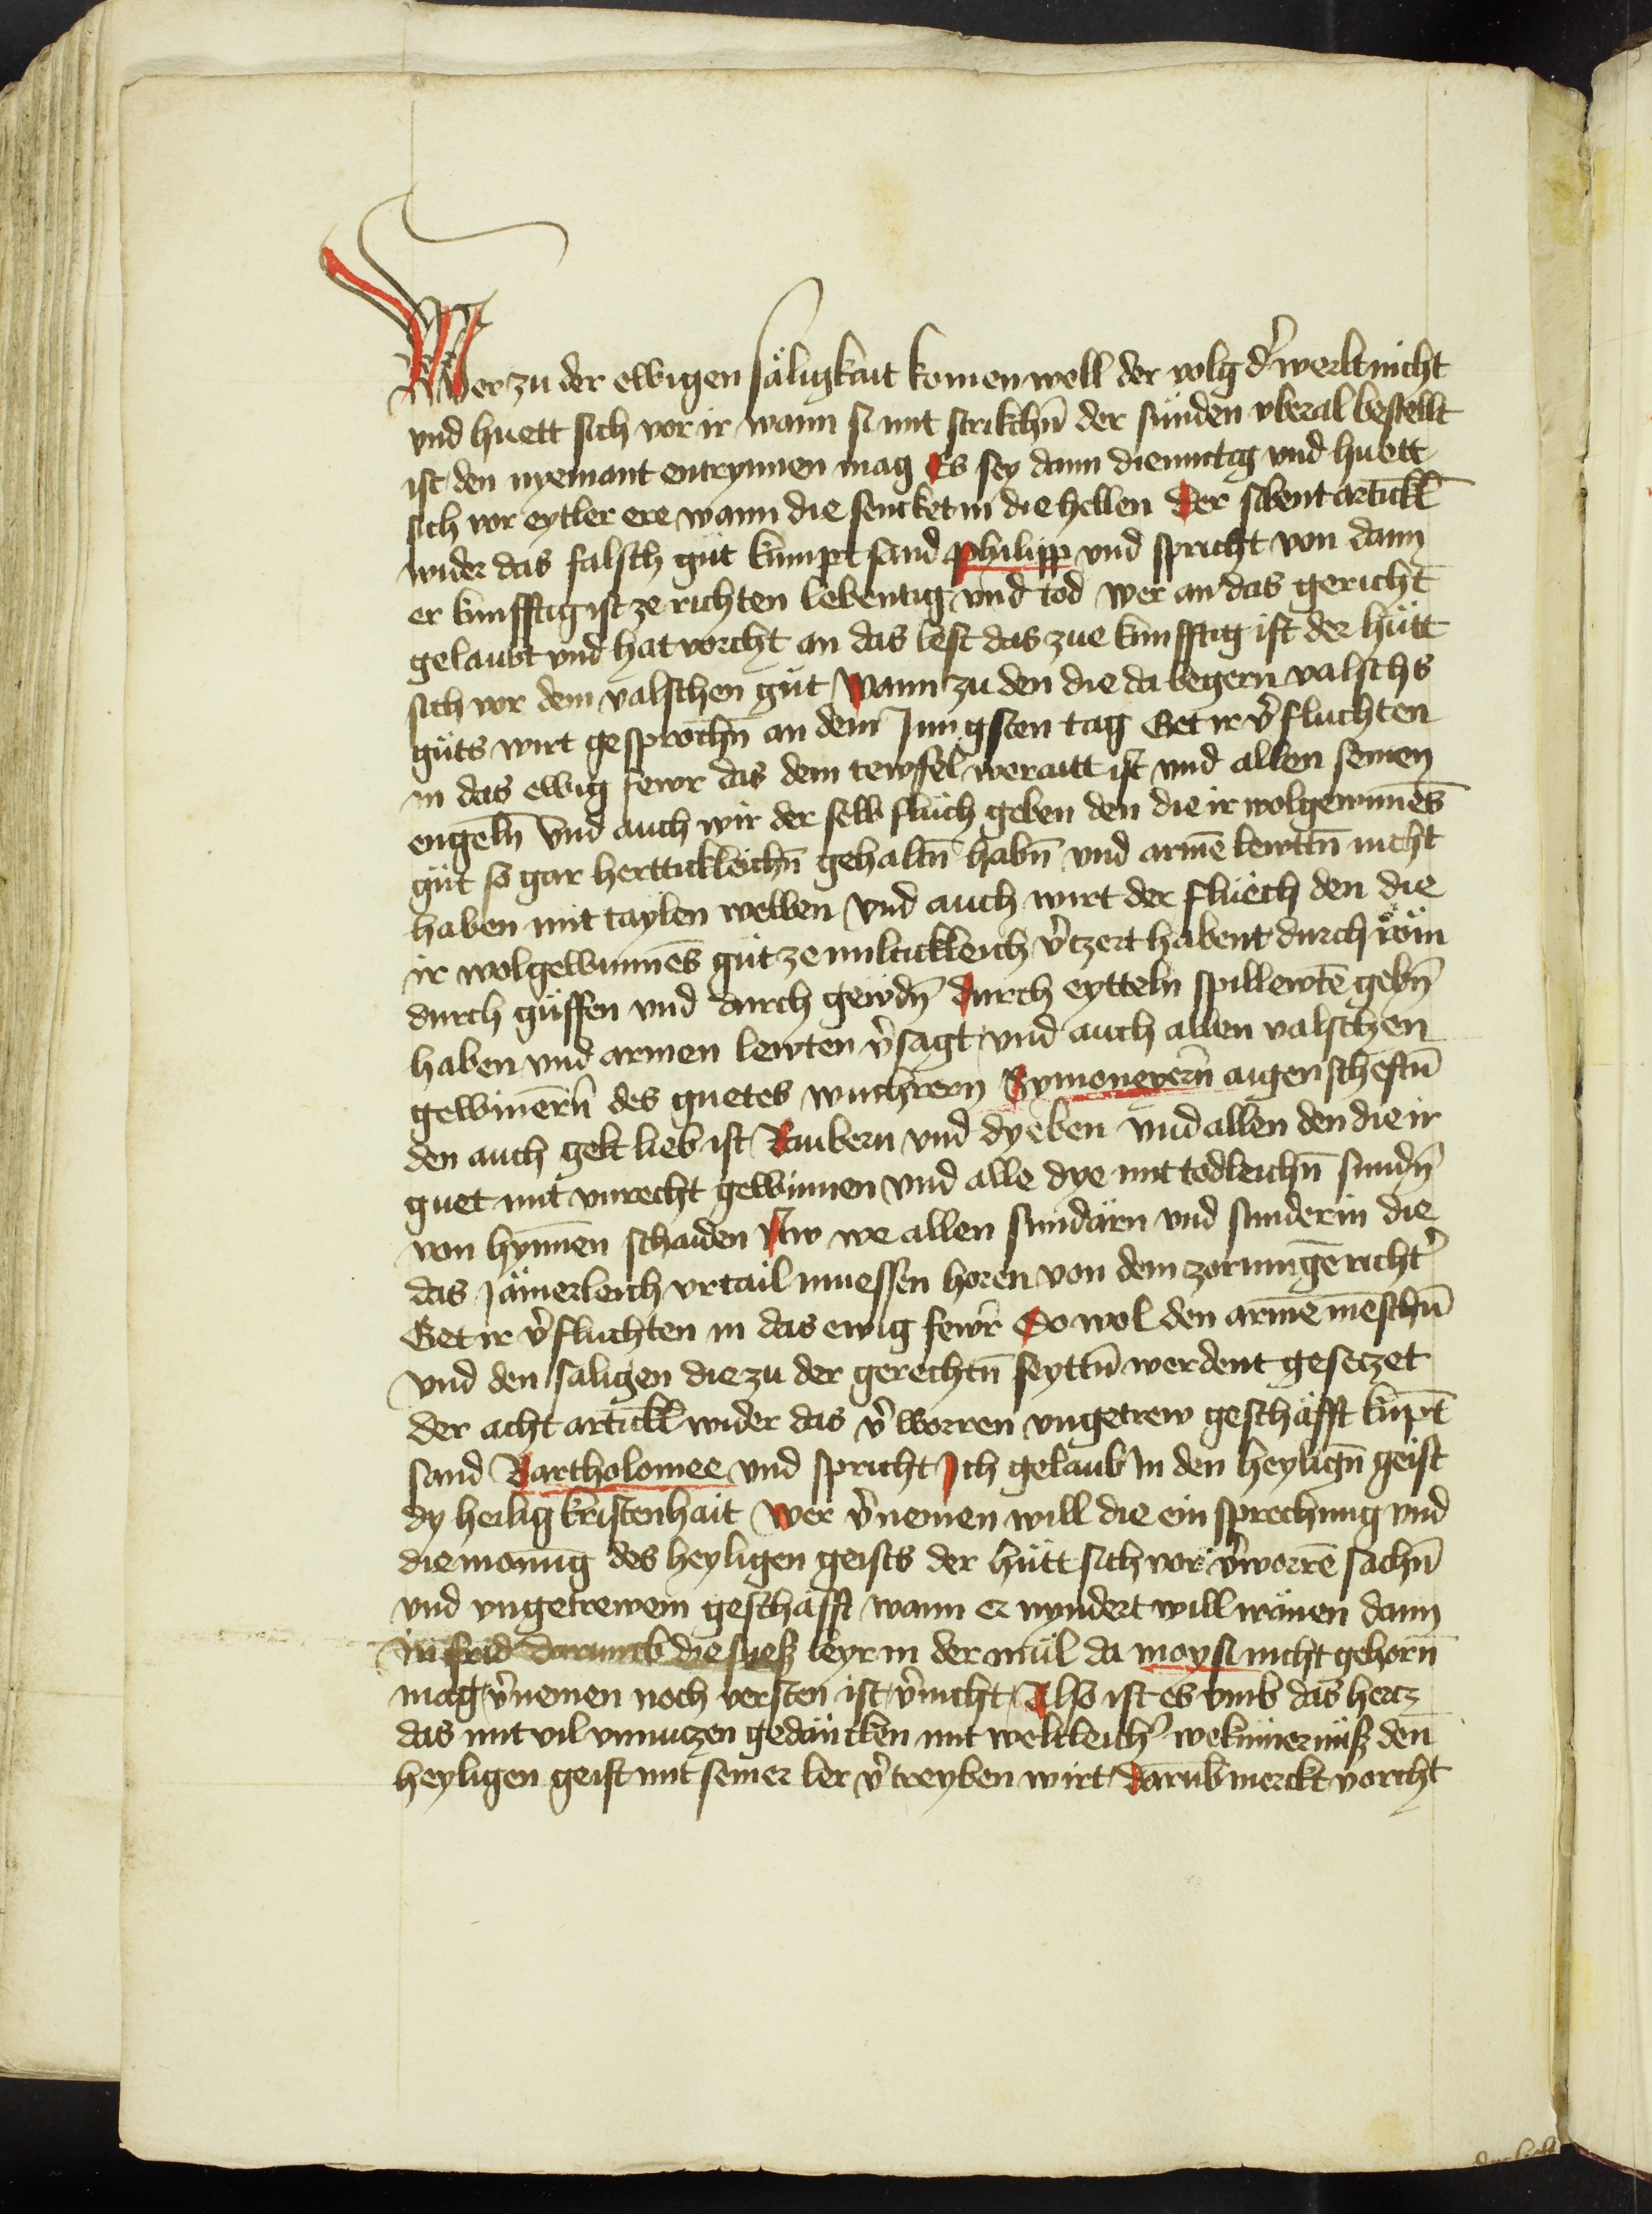 Wer zu der ewigen säligkait komen well der volg d̾ werlt nicht
vnd huett sich vor ir wann si mit strikchn̄ der sünden vberal bestellt
ist den nyemant entrynnen mag Es sey dann diemutig vnd huett
sich vor eytler ere wann die sencket in die hellen Der sibent artickl̄
wider das falsch güt kumpt sand philipp vnd spricht von dann
er kunfftig ist ze richten lebentig vnd tod wer an das gericht
gelaubt vnd hat vorcht an das lest das zue kunfftig ist der hütt
sich vor dem valschen güt Wann zu den die da begern valschs
güts wirt gesprochn̄ an dem Jungsten tag Get ir v̾fluchten
in das ewig fewr das dem tewfel weraitt ist vnd allen seinen
engeln̄ Vnd auch wir der selb flüch geben den die ir wolgewunnēs
güt so gar herttickleichn̄ gehaltn̄ habn̄ vnd armē lewttn̄ nicht
haben mit taylen wellen Vnd auch wirt der flüech den die
ir wolgewunnēs güt ze miltickleich v̾tzert habent durch röm
durch güffen vnd durch gewdn̄ durch eytteln spillewtē gebn̄
haben vnd armen lewten v̾sagt vnd auch allen valschen
gewinērn̄ des guetes wuchrern Symoneyern̄ aigenscheftn̄
den auch gelt lieb ist Raubern vnd dyeben vnd allen den die ir
guet mit vnrecht gewinnen vnd alle dye mit todleichn̄ sundn̄
von hynnen schaiden Aw we allen sundärn vnd sunderin die
das Jämerleich vrtail muessen horen von dem zornungē richt̾
Get ir v̾fluchten in das ewig fewr̄ So wol den armē mēschn̄
vnd den saligen die zu der gerechtn̄ seyttn̄ werdent gesetzet
der acht artickl̄ wider das v̾worren vngetrew geschäfft kūpt
sand Bartholomee vnd spricht Ich gelaub in den heylign̄ geist
dy heilig kristenhait Wer v̾nemen will die ein sprechung vnd
die monūg des heyligen geists der hütt sich vor v̾worrē sachn̄
vnd vngetrewem geschäfft wann er nyndert will wanen dann
in frid darumb die suesz leyr in der mül da moysi nicht gehorn̄
mag v̾nemen noch versten ist v̾nicht Also ist es vmb das hertz
das mit vil vnnutzen gedäncken mit weltleich̾ wekūmernüsz den
heyligen geist mit seiner ler v̾treyben wirt Darūb merckt vorcht